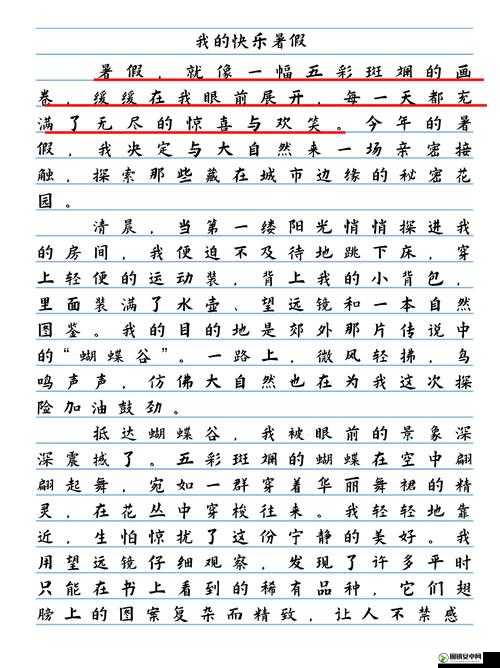 我的快乐暑假
暑假，就像一幅五彩斑斓的画
卷，缓缓在我眼前展开，每一天都充
满了无尽的惊喜与欢笑。今年的暑
假，我决定与大自然来一场亲密接
触，探索那些藏在城市边缘的秘密花
园。
清晨，当第一缕阳光悄悄探进我
的房间，我便迫不及待地跳下床，穿
上轻便的运动装，背上我的小背包，
里面装满了水壶、望远镜和一本自然
图鉴。我的目的地是郊外那片传说中
的“蝴蝶谷”。一路上，微风轻拂，鸟
鸣声声，仿佛大自然也在为我这次探
险加油鼓劲。
抵达蝴蝶谷，我被眼前的景象深
深震撼了。五彩斑斓的蝴蝶在空中翩
翩起舞，宛如一群穿着华丽舞裙的精
灵，在花丛中穿梭往来。我轻轻地靠
近，生怕惊扰了这份宁静的美好。我
用望远镜仔细观察，发现了许多平时
只能在书上看到的稀有品种，它们翅
膀上的图案复杂而精致，让人不禁感